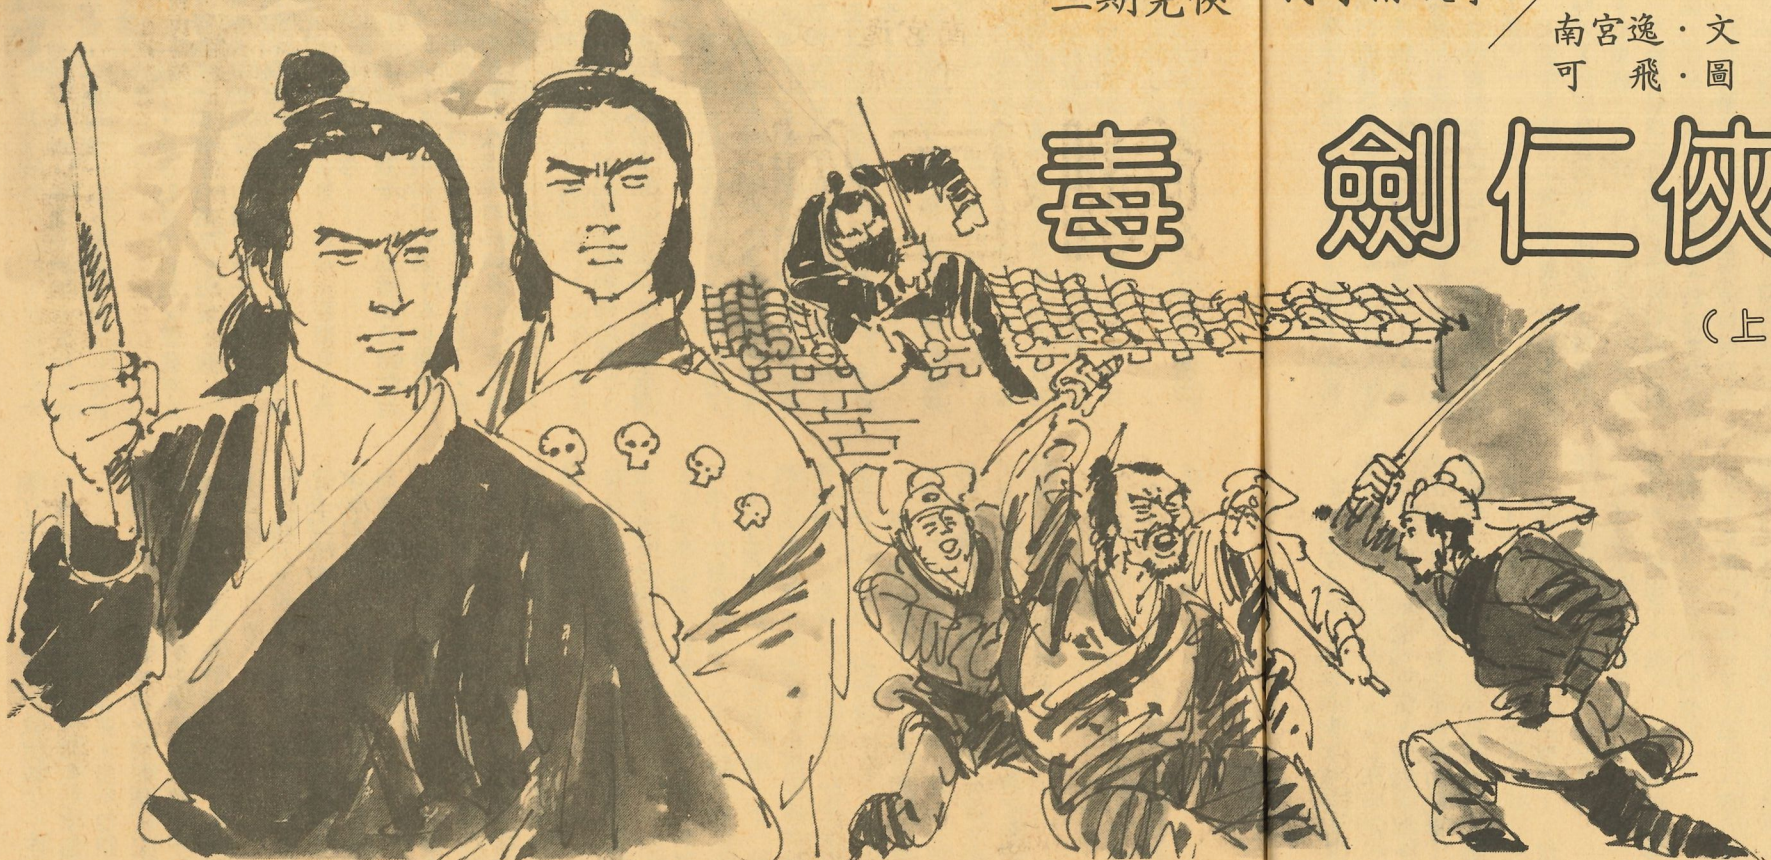 南宮逸·文
可飛·圖
毒劍仁俠
(上